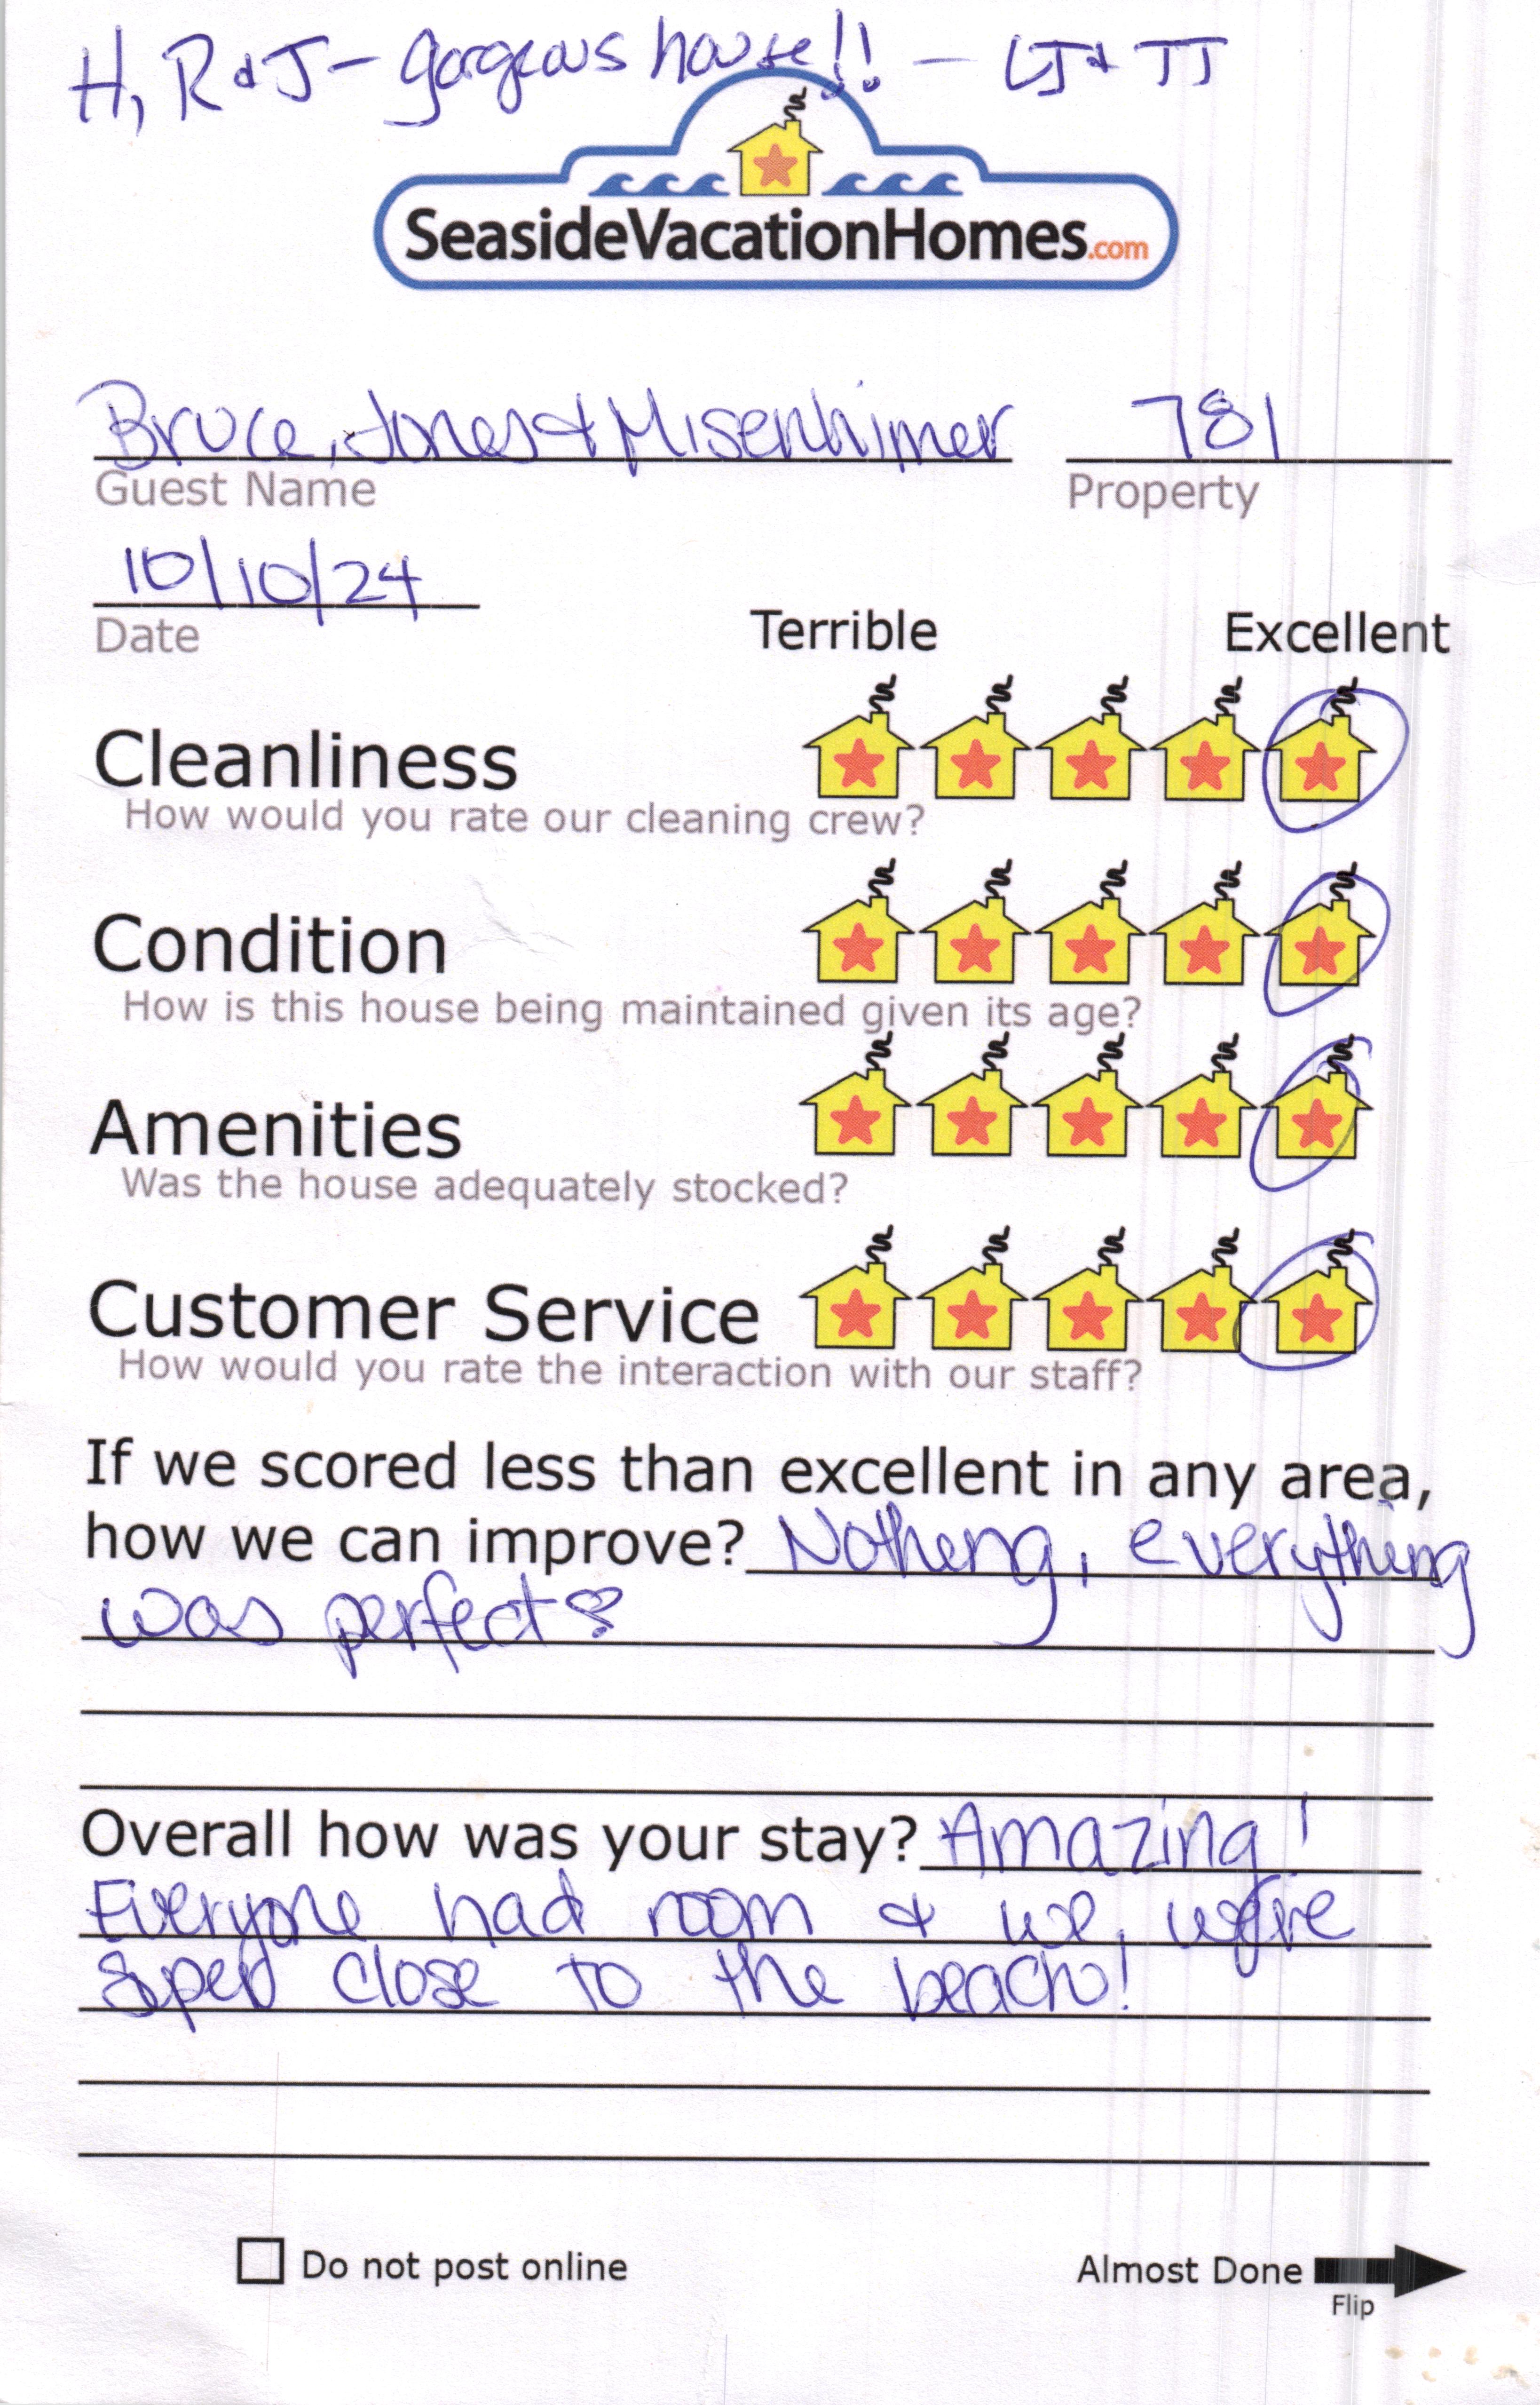 Hi, R & J - gorgeous house!! - LJ & TJ
SeasideVacationHomes.com
Bruce, Jones & Misenhimer 781
Guest Name Property
10/10/24
Date
Terrible Excellent
Cleanliness
How would you rate our cleaning crew?
Condition
How is this house being maintained given its age?
Amenities
Was the house adequately stocked?
Customer Service
How would you rate the interaction with our staff?
If we scored less than excellent in any area,
how we can improve? Nothing, everything
was perfect
Overall how was your stay? Amazing!
Everyone had room & we were
super close to the beach!
Do not post online Almost Done
Flip